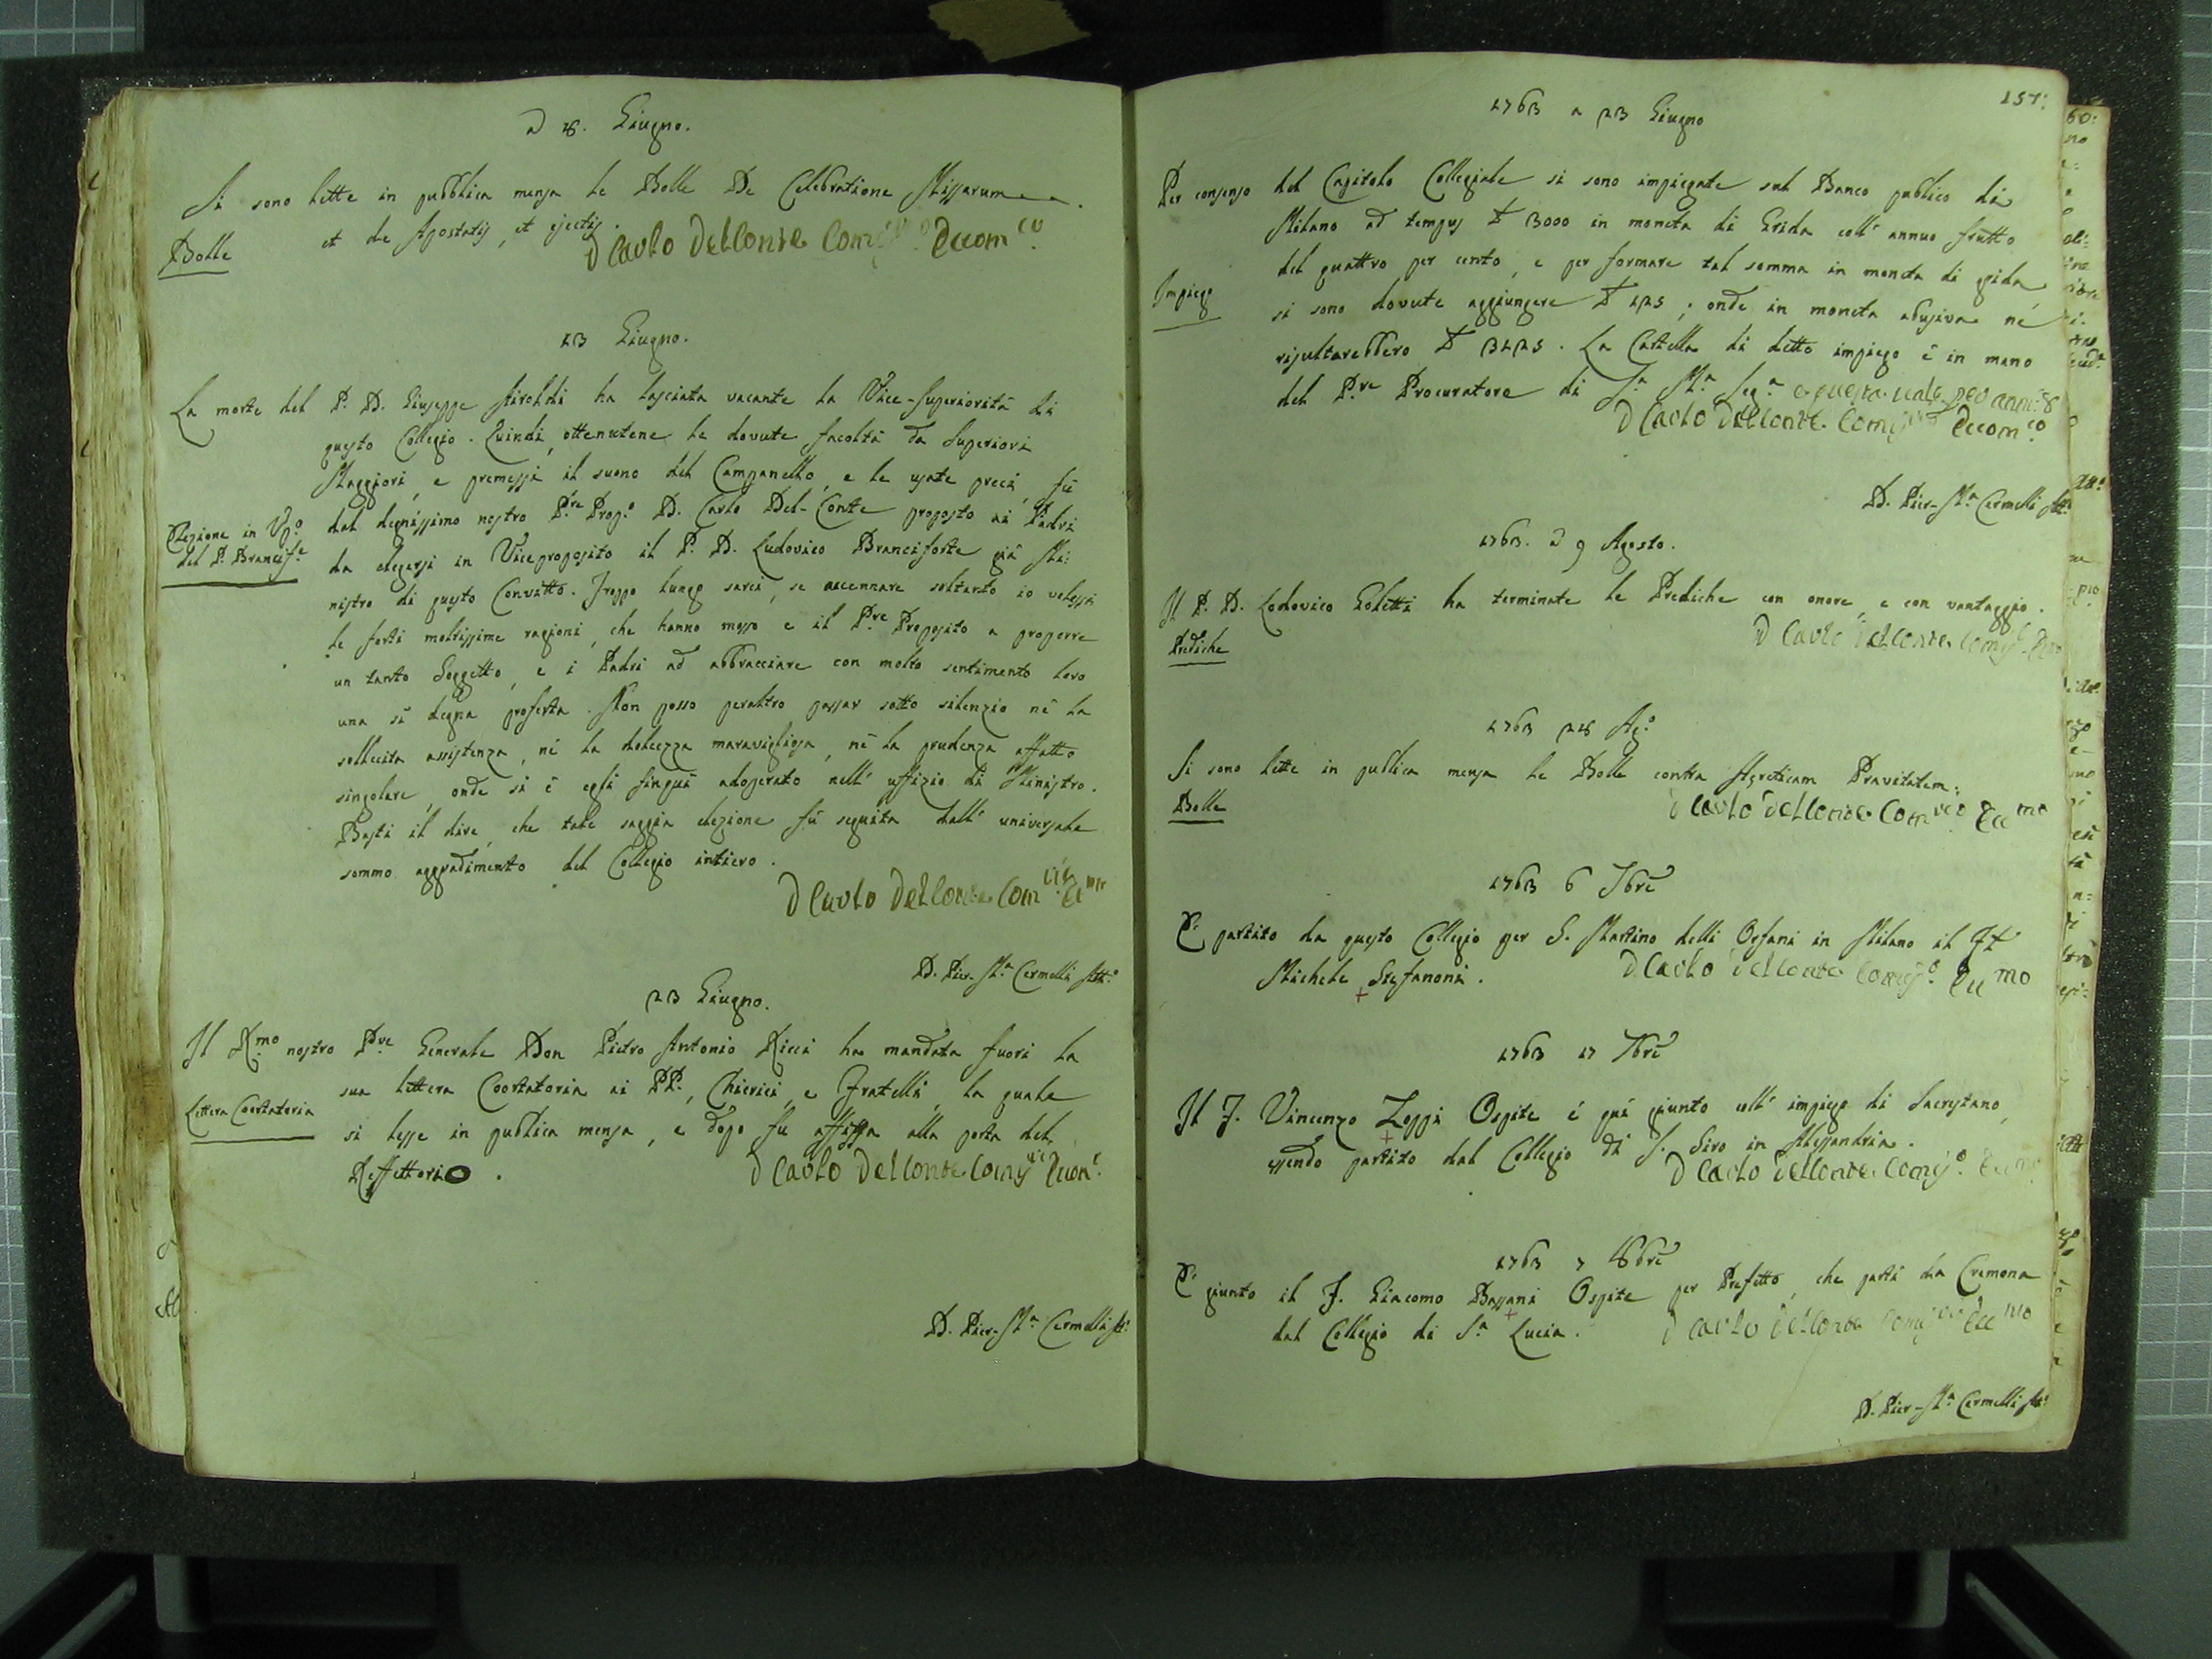 a 8. Giugno.
Si sono lette in pubblica mensa le Bolle De Celebratione Missarum
et de Apostatis, et ejectis.
Bolle
D Carlo Del Conte
13 Giugno.
La morte del P. D. Giuseppe Airoldi ha lasciata vacante la Vice-Superiorità di
questo Collegio. Quindi, ottenutene le dovute facoltà da Superiori
Maggiori, e premessi il suono del Campanello, e le usate preci, fù
dal degnissimo nostro Pre Propo D. Carlo Del-Conte proposto ai Padri
Elezione in Vpo
del P. Brancife
da elegersi in Vicepreposito il P. D. Ludovico Branciforte già Mi:
nistro di questo Convitto. Troppo lungo sarei, se accennare soltanto io volessi
le forti moltissime ragioni, che hanno mosso e il Pre Preposito a proporre
un tanto Soggetto, e i Padri ad abbracciare con molto sentimento loro
una sì degna proferta. Non posso peraltro passar sotto silenzio nè la
sollecita assistenza, nè la dolcezza maravigliosa, nè la prudenza affatto
singolare, onde si è egli finquì adoperato nell' uffizio di Ministro.
Basti il dire, che tale saggia elezione fù seguita dall' universale
sommo aggradimento del Collegio intiero.
D Carlo Del Conte
D. Pier-Ma Cermelli Atto
23 Giugno.
Il Rmo nostro Pre Generale Don Pietro Antonio Ricci ha mandata fuori la
sua lettera Coortatoria ai PP., Chierici, e Fratelli, la quale
Lettera Coortatoria
si lesse in publica mensa, e dopo fu affissa alla porta del
Reffettorio.
D Carlo Del Conte
D. Pier-Ma Cermelli
157:
1763 a 23 Giugno
Per consenso del Capitolo Collegiale si sono impiegate sul Banco publico di
Milano ad tempus 3000 in moneta di Grida coll' annuo frutto
del quattro per cento, e per formare tal somma in moneta di grida
Impiego
si sono dovute aggiungere 125; onde in moneta abusiva nè
risultarebbero 3125. La Cartella di detto impiego è in mano
del Pre Procuratore di Sa Ma Sega
D Carlo Del Conte
D. Pier-Ma Cermelli Atto
1763. a 9 Agosto.
Il P. D. Lodovico Goletti ha terminate le Prediche con onore, e con vantaggio.
Prediche
D Carlo Del Conte
1763 28 Ago
Si sono lette in publica mensa le Bolle contra Hæreticam Pravitatem.
Bolle
D Carlo Del Conte
1763 6 7bre
E' partito da questo Collegio per S. Martino delli Orfani in Milano il
Michele Stefanoni.
D Carlo Del Conte
1763 17 7bre
Il F. Vincenzo Zoppi Ospite è quì giunto coll' impiego di Sacrestano,
essendo partito dal Collegio di S. Siro in Alessandria.
D Carlo Del Conte
1763 7 8bre
E' giunto il F. Giacomo Bassani Ospite per Prefetto, che partì da Cremona
dal Collegio di Sa Lucia.
D Carlo Del Conte
D. Pier-Ma Cermelli